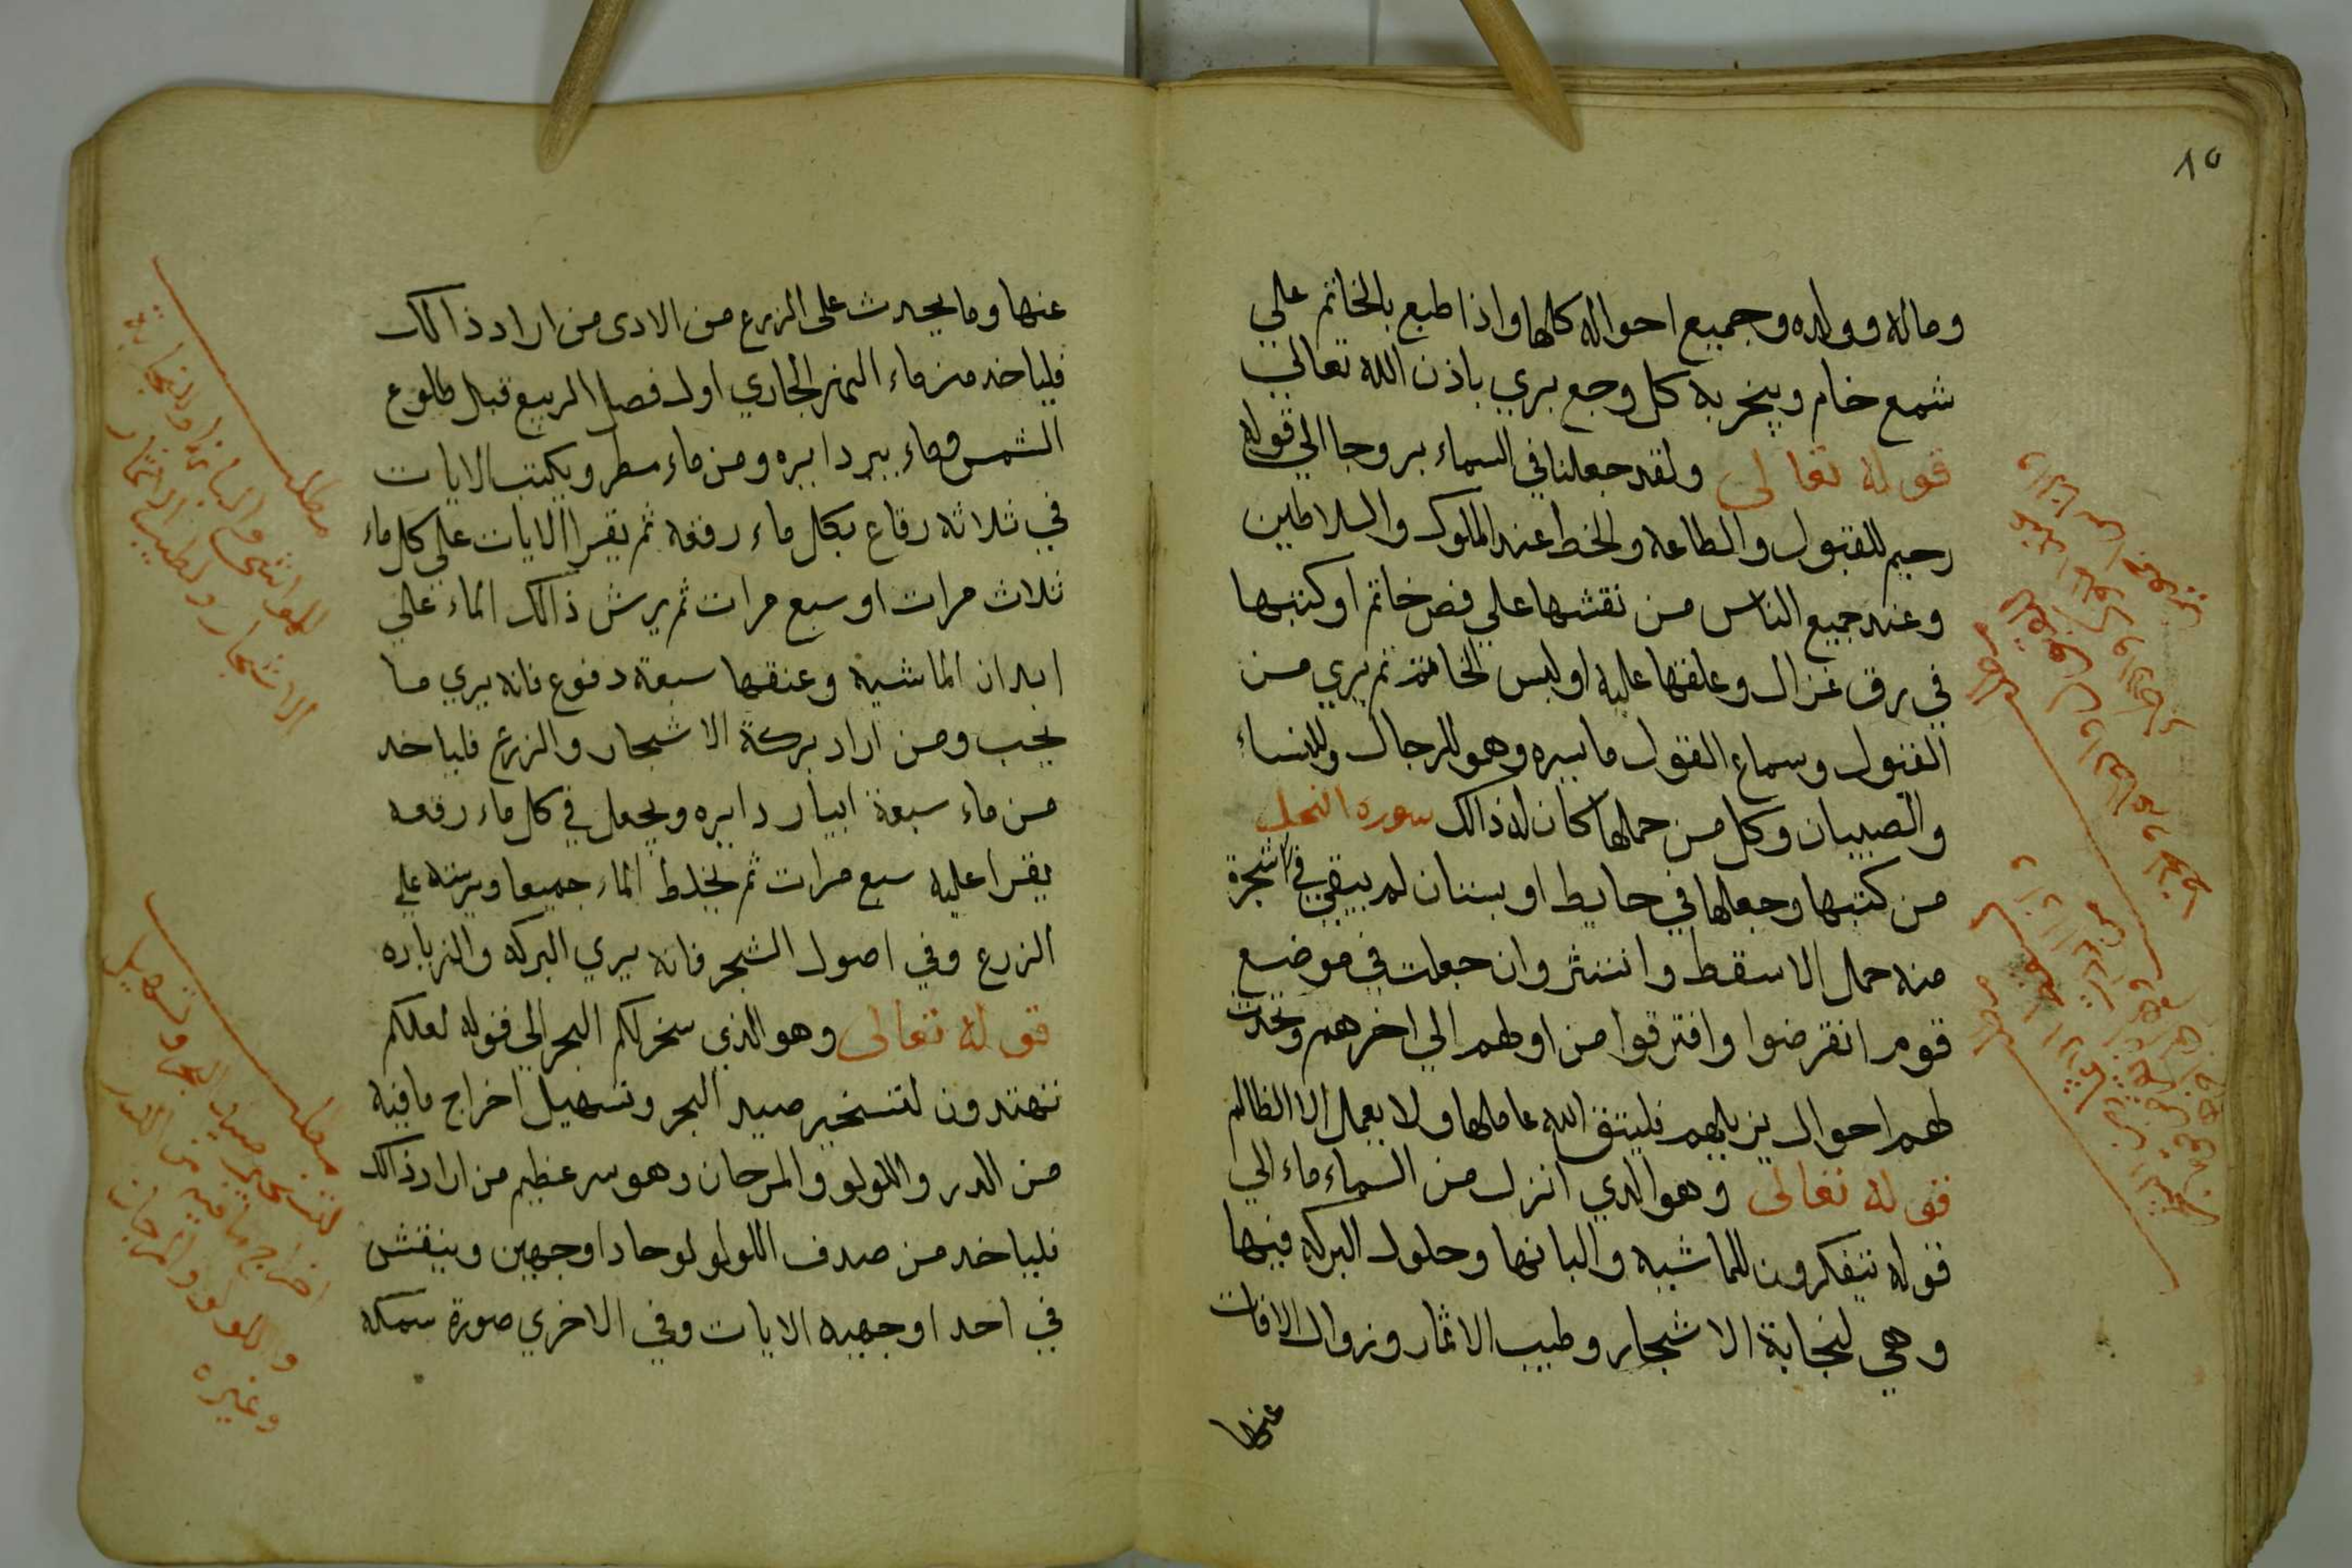 ٨٥
وماله وولده وجميع احواله كلها واذا طبع بالخاتم علي
شمع خام وبخر به كل وجع بري باذن الله تعالي
قوله تعالى ولقد جعلنا في السماء بروجا الي قوله
رجيم للقبول والطاعه والخط عند الملوك والسلاطين
وعند جميع الناس من نقشها علي فص خاتم او كتبها
في رق غزال وعلقها عليه او لبس الخاتم ثم يري من
القبول وسماع القول ما يسره وهو للرجال وللنساء
والصبيان وكل من حملها كان له ذالك سورة النحل
من كتبها وجعلها في حايط او بستان لم يبقي فى شجرة
منه حمل الا سقط وانتثر وان جعلت في موضع
قوم انقرضوا وافترقوا من اولهم الي اخرهم وتحدث
لهم احوال يزيلهم فليتق الله عاملها ولا يعمل الا الظالم
قوله تعالى وهو الدي انزل من السماء ماء الي
قوله يتفكرون للماشيه والبانها وحلول البركه فيها
وهي لنجابة الاشجار وطيب الاثمار وزوال الافات
عنها
عنها وما يحدث على الزرع من الادى من اراد ذالك
فلياخد من ماء النهر الجاري اول فصل الربيع قبل طلوع
الشمس وماء بير دايره ومن ماء مطر ويكتب الايات
في ثلاثه رقاع بكل ماء رقعه ثم يقرا الايات علي كل ماء
ثلاث مرات او سبع مرات ثم يرش ذالك الماء علي
ابدان الماشيه وعنقها سبعة دفوع فانه يري ما
يحب ومن اراد بركة الاشجار والزرع فلياخد
من ماء سبعة ابيار دايره ويجعل في كل ماء رقعه
يقرا عليه سبع مرات ثم يخلط الماء جميعا ويرشه علي
الزرع وفي اصول الشجر فانه يري البركه والزياده
قوله تعالى وهو الذي سخر لكم البحر الي قوله لعلكم
تهتدون لتسخير صيد البحر وتسهيل اخراج ما فيه
من الدر واللولو والمرجان وهو سر عظيم من اراد ذالك
فلياخد من صدف اللولو لوحا دا وجهين وينقش
في احد اوجهيه الايات وفي الاخري صورة سمكه
مطلب
للمواشي والبانها ولنجابة
الاشجار ولطيب الاثمار
مطلب
لتسخير صيد البحر وتسهيل
اخراج ما فيه من الدر
واللولو والمرجان
وغيره